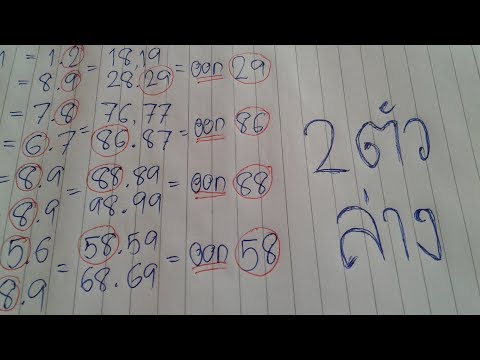 1 = 1.2 = 18,19
= 8.9 28.29 = ออก 29
= 7.8 76,77
6.7 = 86.87 = ออก 86
= 8.9 = 88.89 = ออก 88
8.9 98.99
5.6 = 58.59 = ออก 58
8.9 68.69
2 ตัว
ล่าง